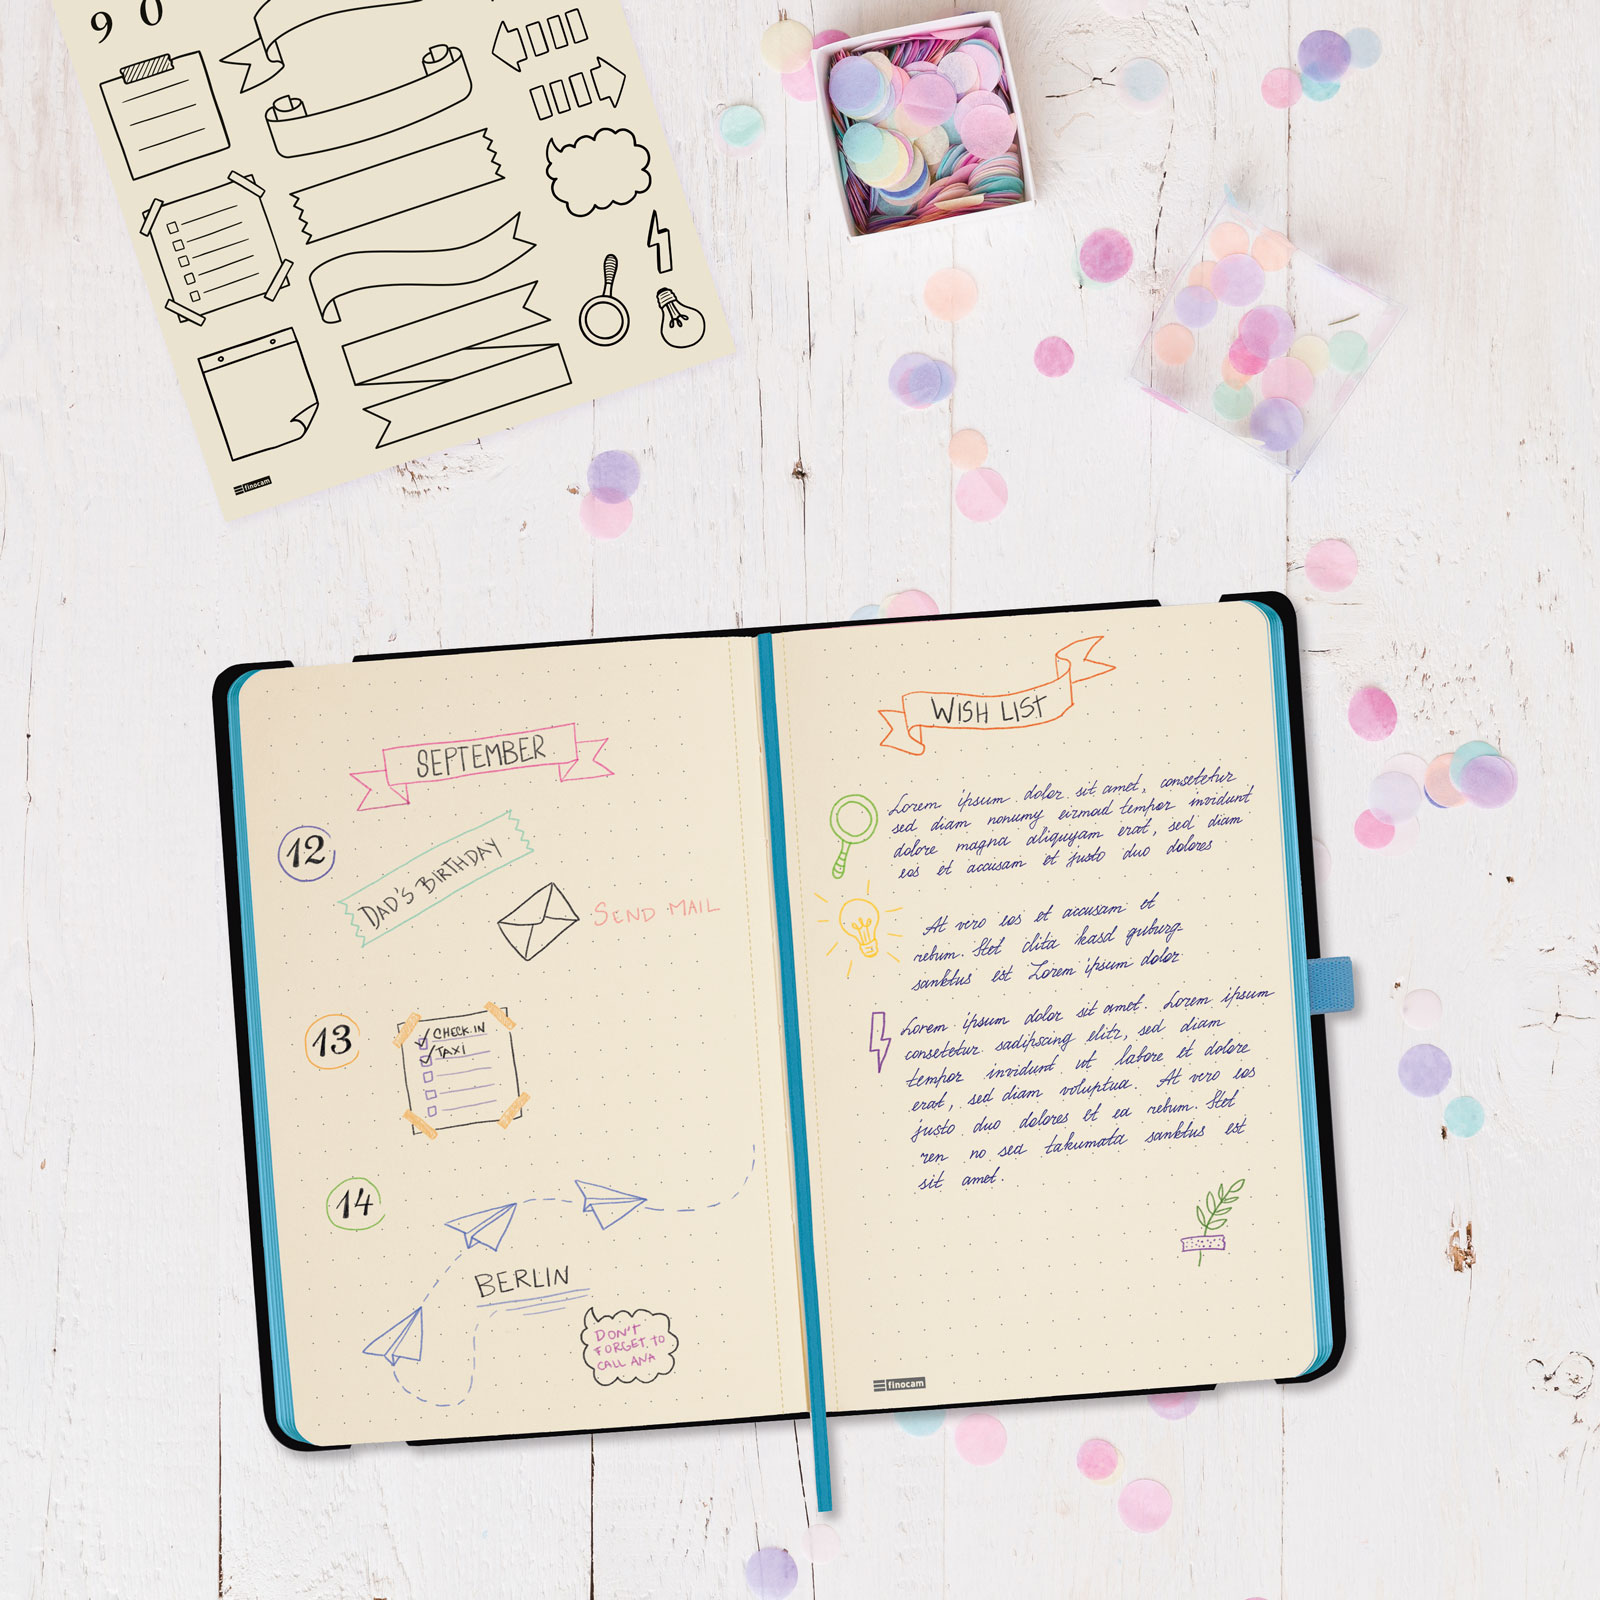 9 0
finocam
SEPTEMBER
12
DAD'S BIRTHDAY
SEND MAIL
13
CHECK IN
TAXI
14
BERLIN
DON'T
FORGET TO
CALL ANA
WISH LIST
Lorem ipsum dolor sit amet, consetetur
sed diam nonumy eirmod tempor invidunt
dolore magna aliquyam erat, sed diam
eos et accusam et justo duo dolores
At vero eos et accusam et
rebum. Stet clita kasd guburg-
sanktus est Lorem ipsum dolor
Lorem ipsum dolor sit amet. Lorem ipsum
consetetur sadipscing elitr, sed diam
tempor invidunt ut labore et dolore
erat, sed diam voluptua. At vero eos
justo duo dolores et ea rebum. Stet
ren no sea takumata sanktus est
sit amet.
finocam